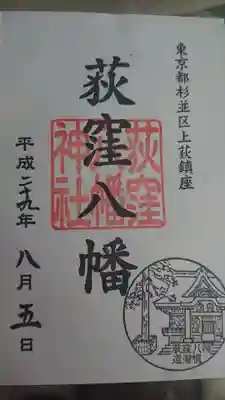 東京都杉並区上荻鎮座
荻窪八幡
荻窪
八幡
神社
平成二十九年 八月五日
荻窪八幡